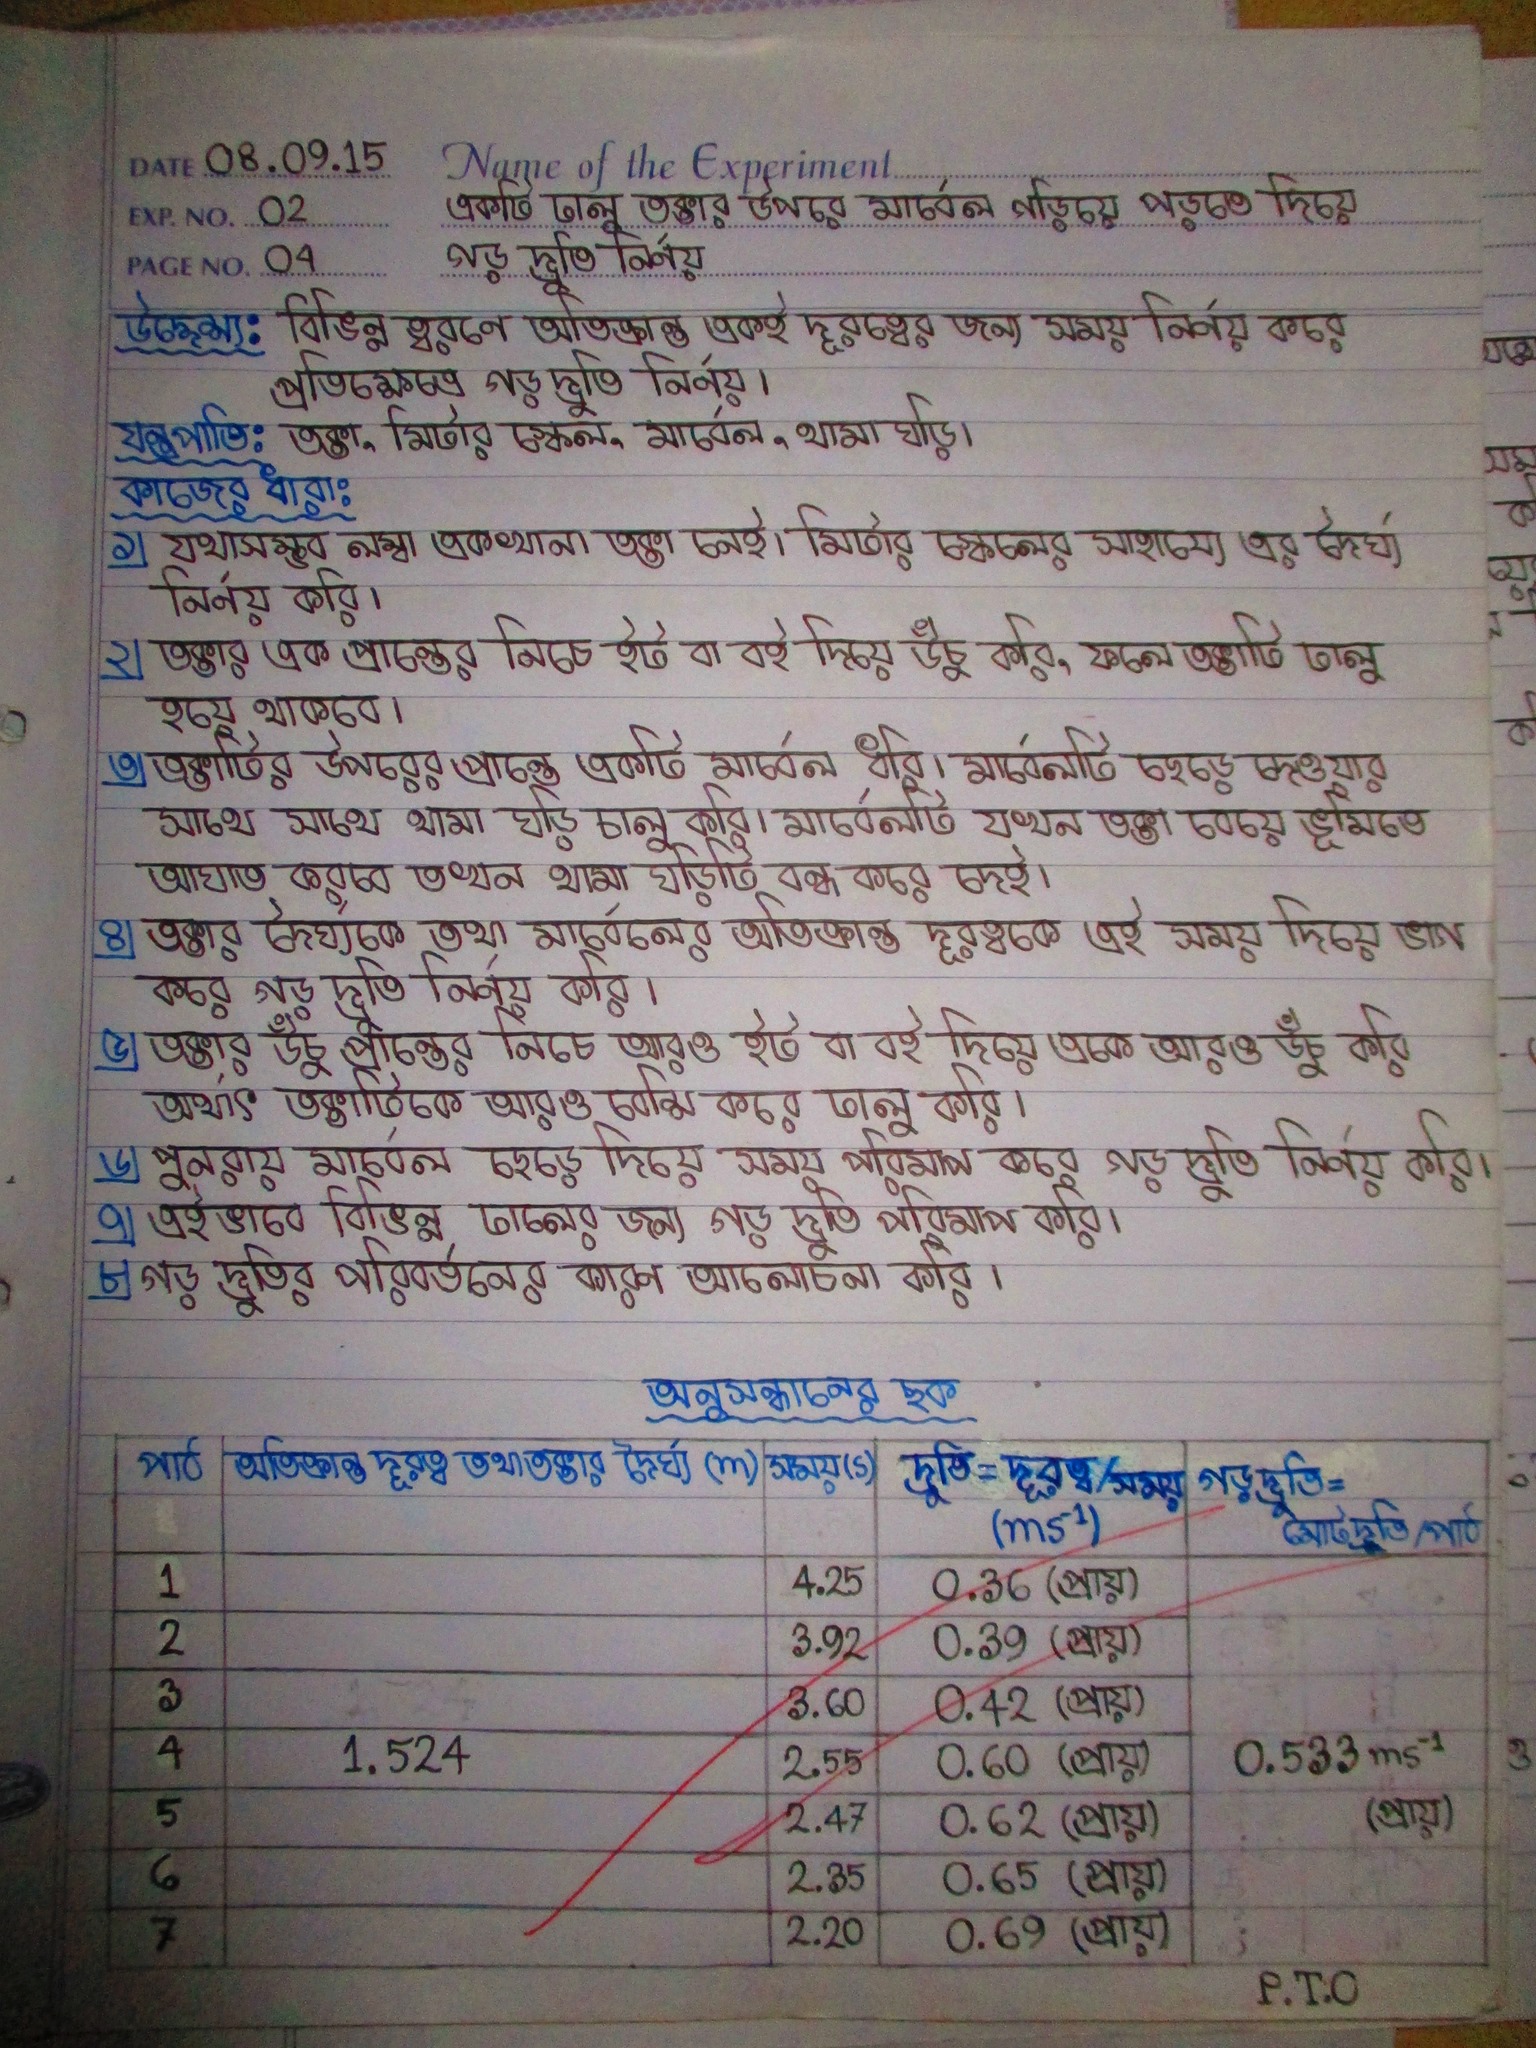 DATE 08.09.15 Name of the Experiment
EXP. NO. 02 একটি ঢালু তক্তার উপরে মার্বেল গড়িয়ে পড়তে দিয়ে
PAGE NO. 04 গড় দ্রুতি নির্ণয়
উদ্দেশ্য: বিভিন্ন ত্বরণে অতিক্রান্ত একই দূরত্বের জন্য সময় নির্ণয় করে
প্রতিক্ষেত্রে গড় দ্রুতি নির্ণয়।
যন্ত্রপাতি: তক্তা, মিটার স্কেল, মার্বেল, থামা ঘড়ি।
কাজের ধারা:
১| যথাসম্ভব লম্বা একখানা তক্তা নেই। মিটার স্কেলের সাহায্যে এর দৈর্ঘ্য
নির্ণয় করি।
২| তক্তার এক প্রান্তের নিচে ইট বা বই দিয়ে উঁচু করি, ফলে তক্তাটি ঢালু
হয়ে থাকবে।
৩| তক্তাটির উপরের প্রান্তে একটি মার্বেল ধরি। মার্বেলটি ছেড়ে দেওয়ার
সাথে সাথে থামা ঘড়ি চালু করি। মার্বেলটি যখন তক্তা বেয়ে ভূমিতে
আঘাত করবে তখন থামা ঘড়িটি বন্ধ করে দেই।
৪| তক্তার দৈর্ঘ্যকে তথা মার্বেলের অতিক্রান্ত দূরত্বকে এই সময় দিয়ে ভাগ
করে গড় দ্রুতি নির্ণয় করি।
৫| তক্তার উঁচু প্রান্তের নিচে আরও ইট বা বই দিয়ে একে আরও উঁচু করি
অর্থাৎ তক্তাটিকে আরও বেশি করে ঢালু করি।
৬| পুনরায় মার্বেল ছেড়ে দিয়ে সময় পরিমাপ করে গড় দ্রুতি নির্ণয় করি।
৭| এইভাবে বিভিন্ন ঢালের জন্য গড় দ্রুতি পরিমাপ করি।
৮| গড় দ্রুতির পরিবর্তনের কারণ আলোচনা করি।
অনুসন্ধানের ছক
পাঠ অতিক্রান্ত দূরত্ব তথা তক্তার দৈর্ঘ্য (m) সময়(s) দ্রুতি = দূরত্ব/সময় গড় দ্রুতি =
(ms⁻¹) মোট দ্রুতি/পাঠ
1 4.25 0.36 (প্রায়)
2 3.92 0.39 (প্রায়)
3 3.60 0.42 (প্রায়)
4 1.524 2.55 0.60 (প্রায়) 0.533 ms⁻¹
5 2.47 0.62 (প্রায়) (প্রায়)
6 2.35 0.65 (প্রায়)
7 2.20 0.69 (প্রায়)
P.T.O